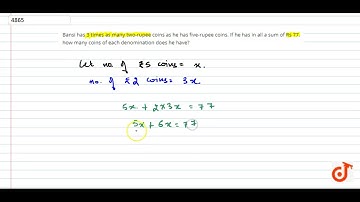 4865
Bansi has 3 times as many two-rupee coins as he has five-rupee coins. If he has in all a sum of Rs 77,
how many coins of each denomination does he have?
Let no. of ₹5 coins = x.
no. of ₹2 coins = 3x
5x + 2×3x = 77
5x + 6x = 77